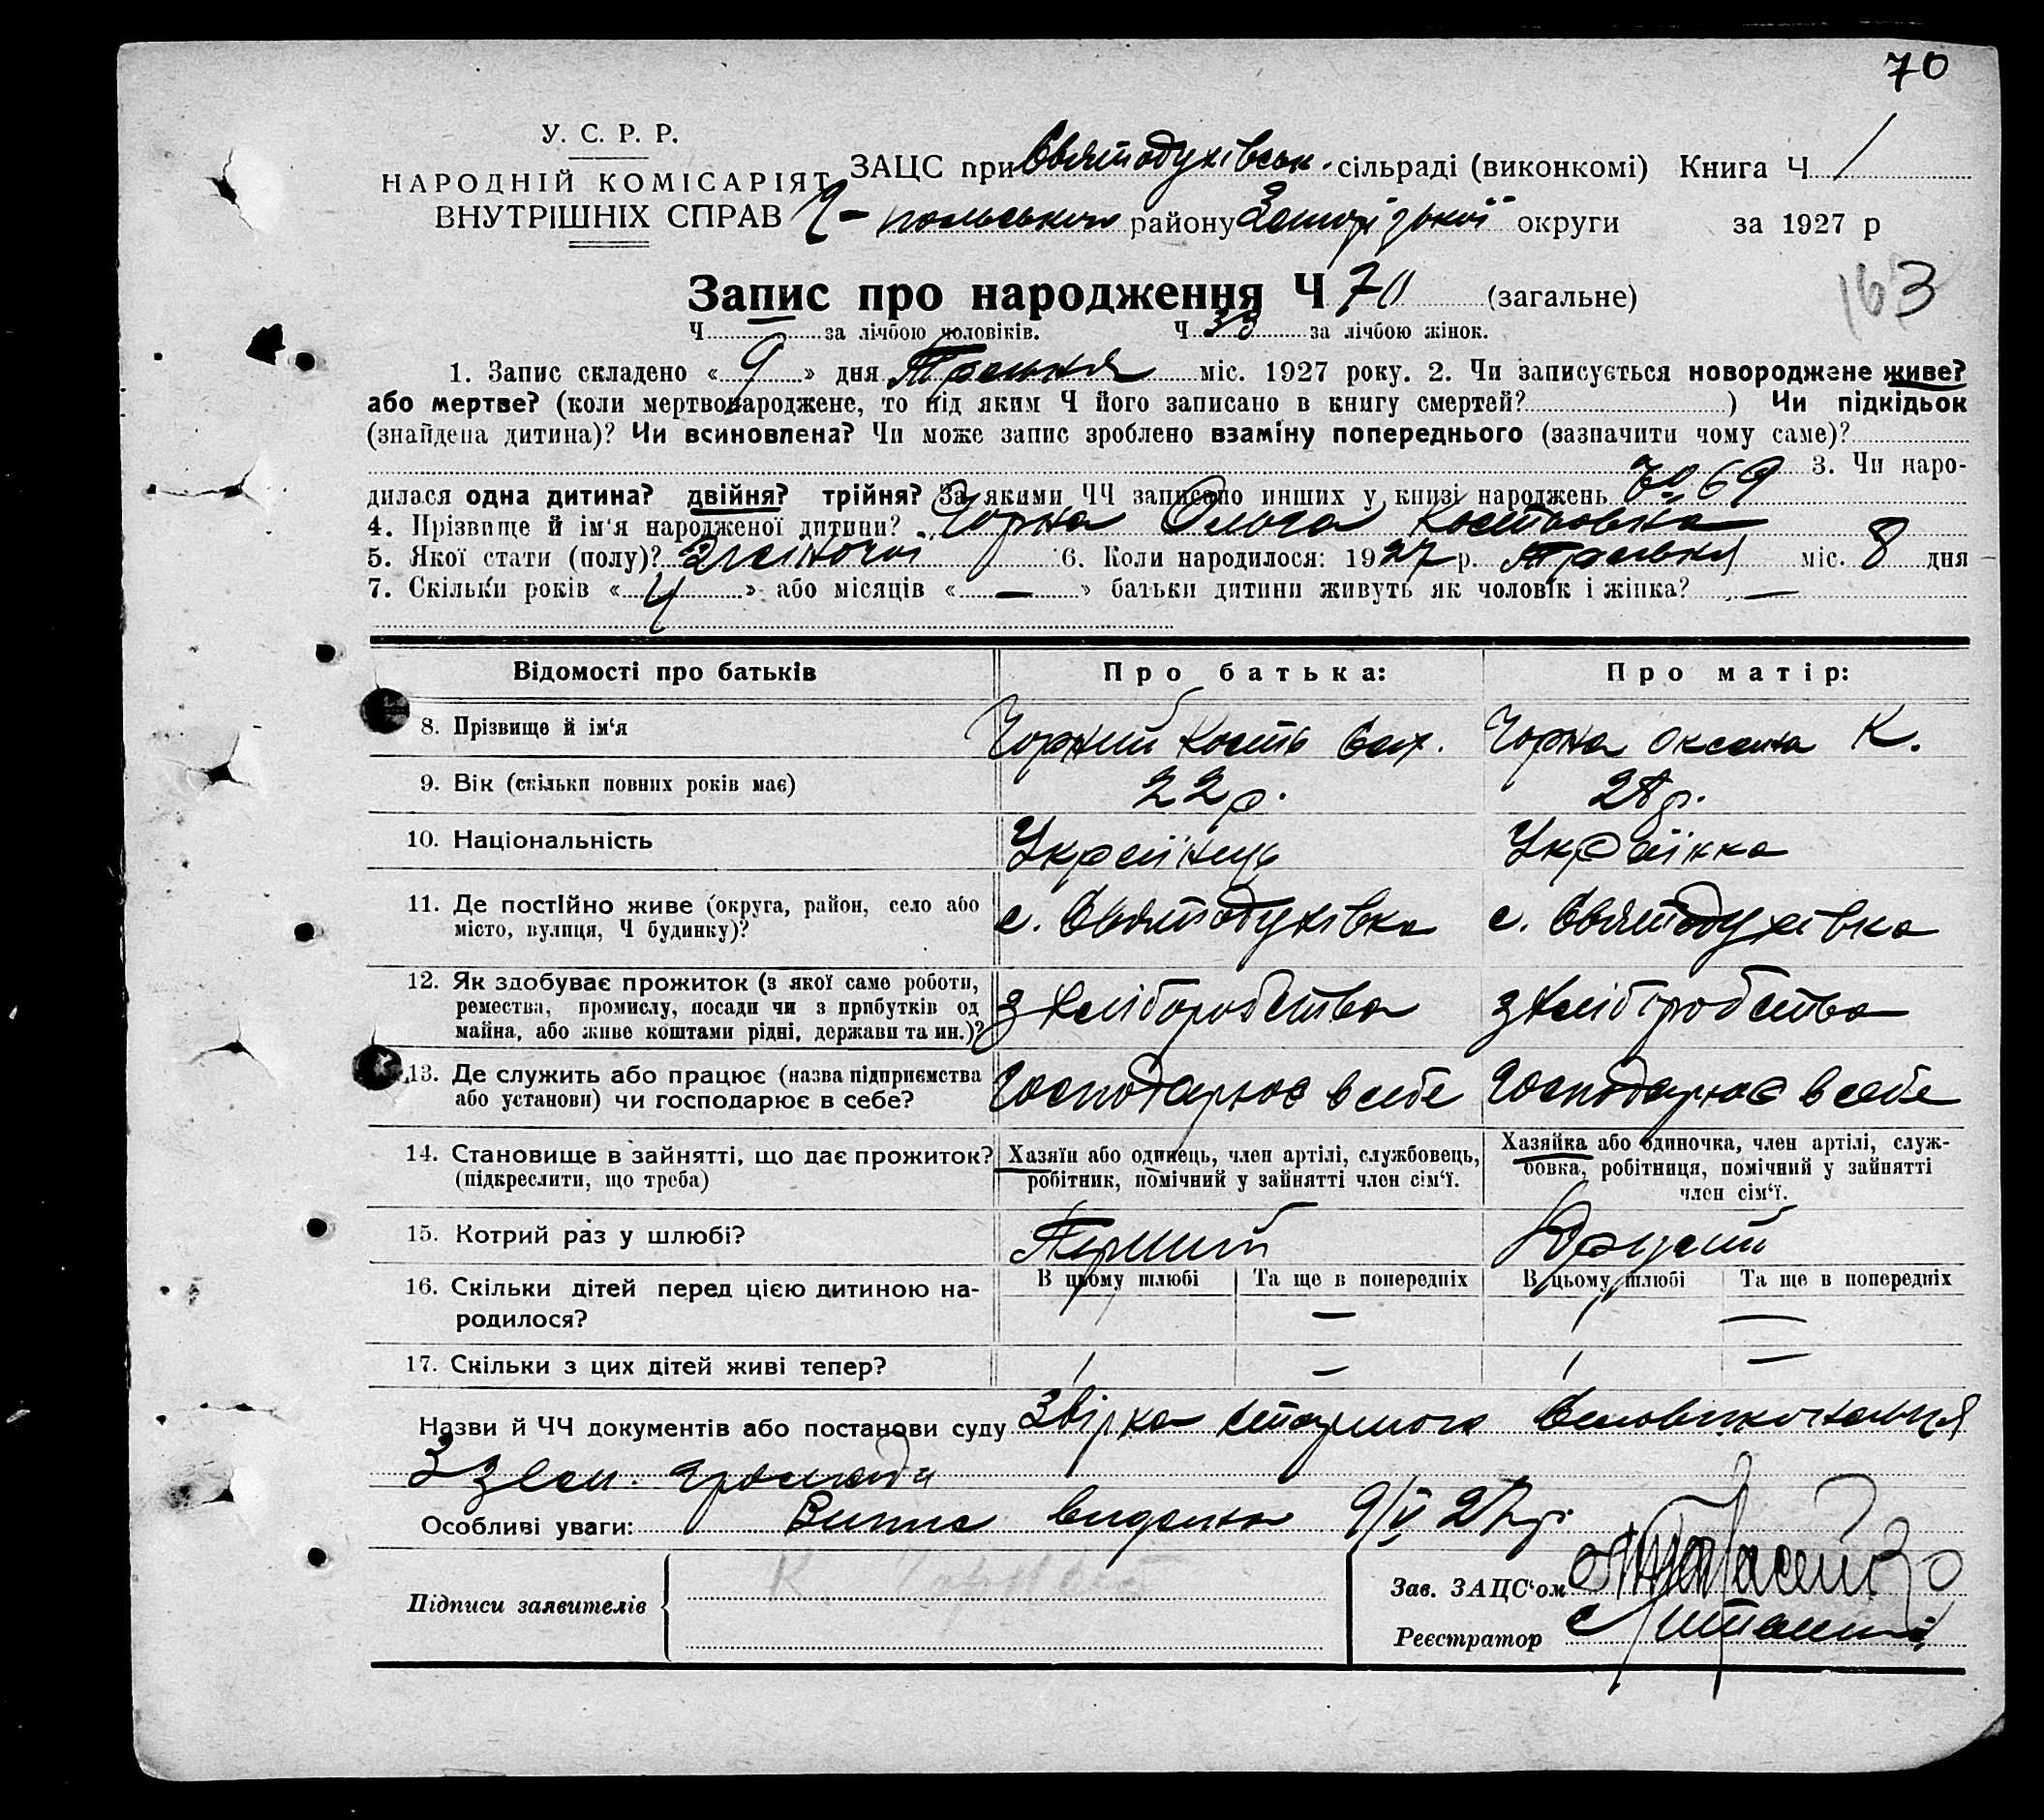 70
У. С. Р. Р.
НАРОДНІЙ КОМІСАРІЯТ
ВНУТРІШНІХ СПРАВ
ЗАЦС при Святодухівськ. сільраді (виконкомі) Книга Ч 1
Ч-польського району Запорізької округи за 1927 р
163
Запис про народження Ч 70 (загальне)
Ч — за лічбою чоловіків. Ч 33 за лічбою жінок.
1. Запис складено «9» дня Травня міс. 1927 року. 2. Чи записується новороджене живе?
або мертве? (коли мертвонароджене, то під яким Ч його записано в книгу смертей? ) Чи підкідьок
(знайдена дитина)? Чи всиновлена? Чи може запис зроблено взаміну попереднього (зазначити чому саме)?
3. Чи наро-
дилася одна дитина? двійня? трійня? За якими ЧЧ записано инших у книзі народжень 69
4. Прізвище й ім'я народженої дитини? Чорна Ольга Костьовна
5. Якої стати (полу)? Жіночої 6. Коли народилося: 1927 р. Травня міс. 8 дня
7. Скільки років «4» або місяців «—» батьки дитини живуть як чоловік і жінка? —
Відомості про батьків Про батька: Про матір:
8. Прізвище й ім'я Чорний Кость Вах. Чорна Оксана К.
9. Вік (скільки повних років має) 22 р. 28 р.
10. Національність Українець Українка
11. Де постійно живе (округа, район, село або
місто, вулиця, Ч будинку)? с. Святодухівка с. Святодухівка
12. Як здобуває прожиток (з якої саме роботи,
ремества, промислу, посади чи з прибутків од
майна, або живе коштами рідні, держави та ин.)? з хліборобства з хліборобства
13. Де служить або працює (назва підприємства
або установи) чи господарює в себе? Господарює в себе Господарює в себе
14. Становище в зайнятті, що дає прожиток?
(підкреслити, що треба)
Хазяїн або одинець, член артілі, службовець,
робітник, помічний у зайнятті член сім'ї.
Хазяйка або одиночка, член артілі, служ-
бовка, робітниця, помічний у зайнятті
член сім'ї.
15. Котрий раз у шлюбі? Перший Другий
16. Скільки дітей перед цією дитиною на-
родилося?
В цьому шлюбі Та ще в попередніх В цьому шлюбі Та ще в попередніх
1 — 1 —
17. Скільки з цих дітей живі тепер? 1 — 1 —
Назви й ЧЧ документів або постанови суду Звірка старшого
З зем. громади
Особливі уваги: Випис видана 9/V 27 р.
Підписи заявителів К Чорний
Зав. ЗАЦС'ом
Реєстратор